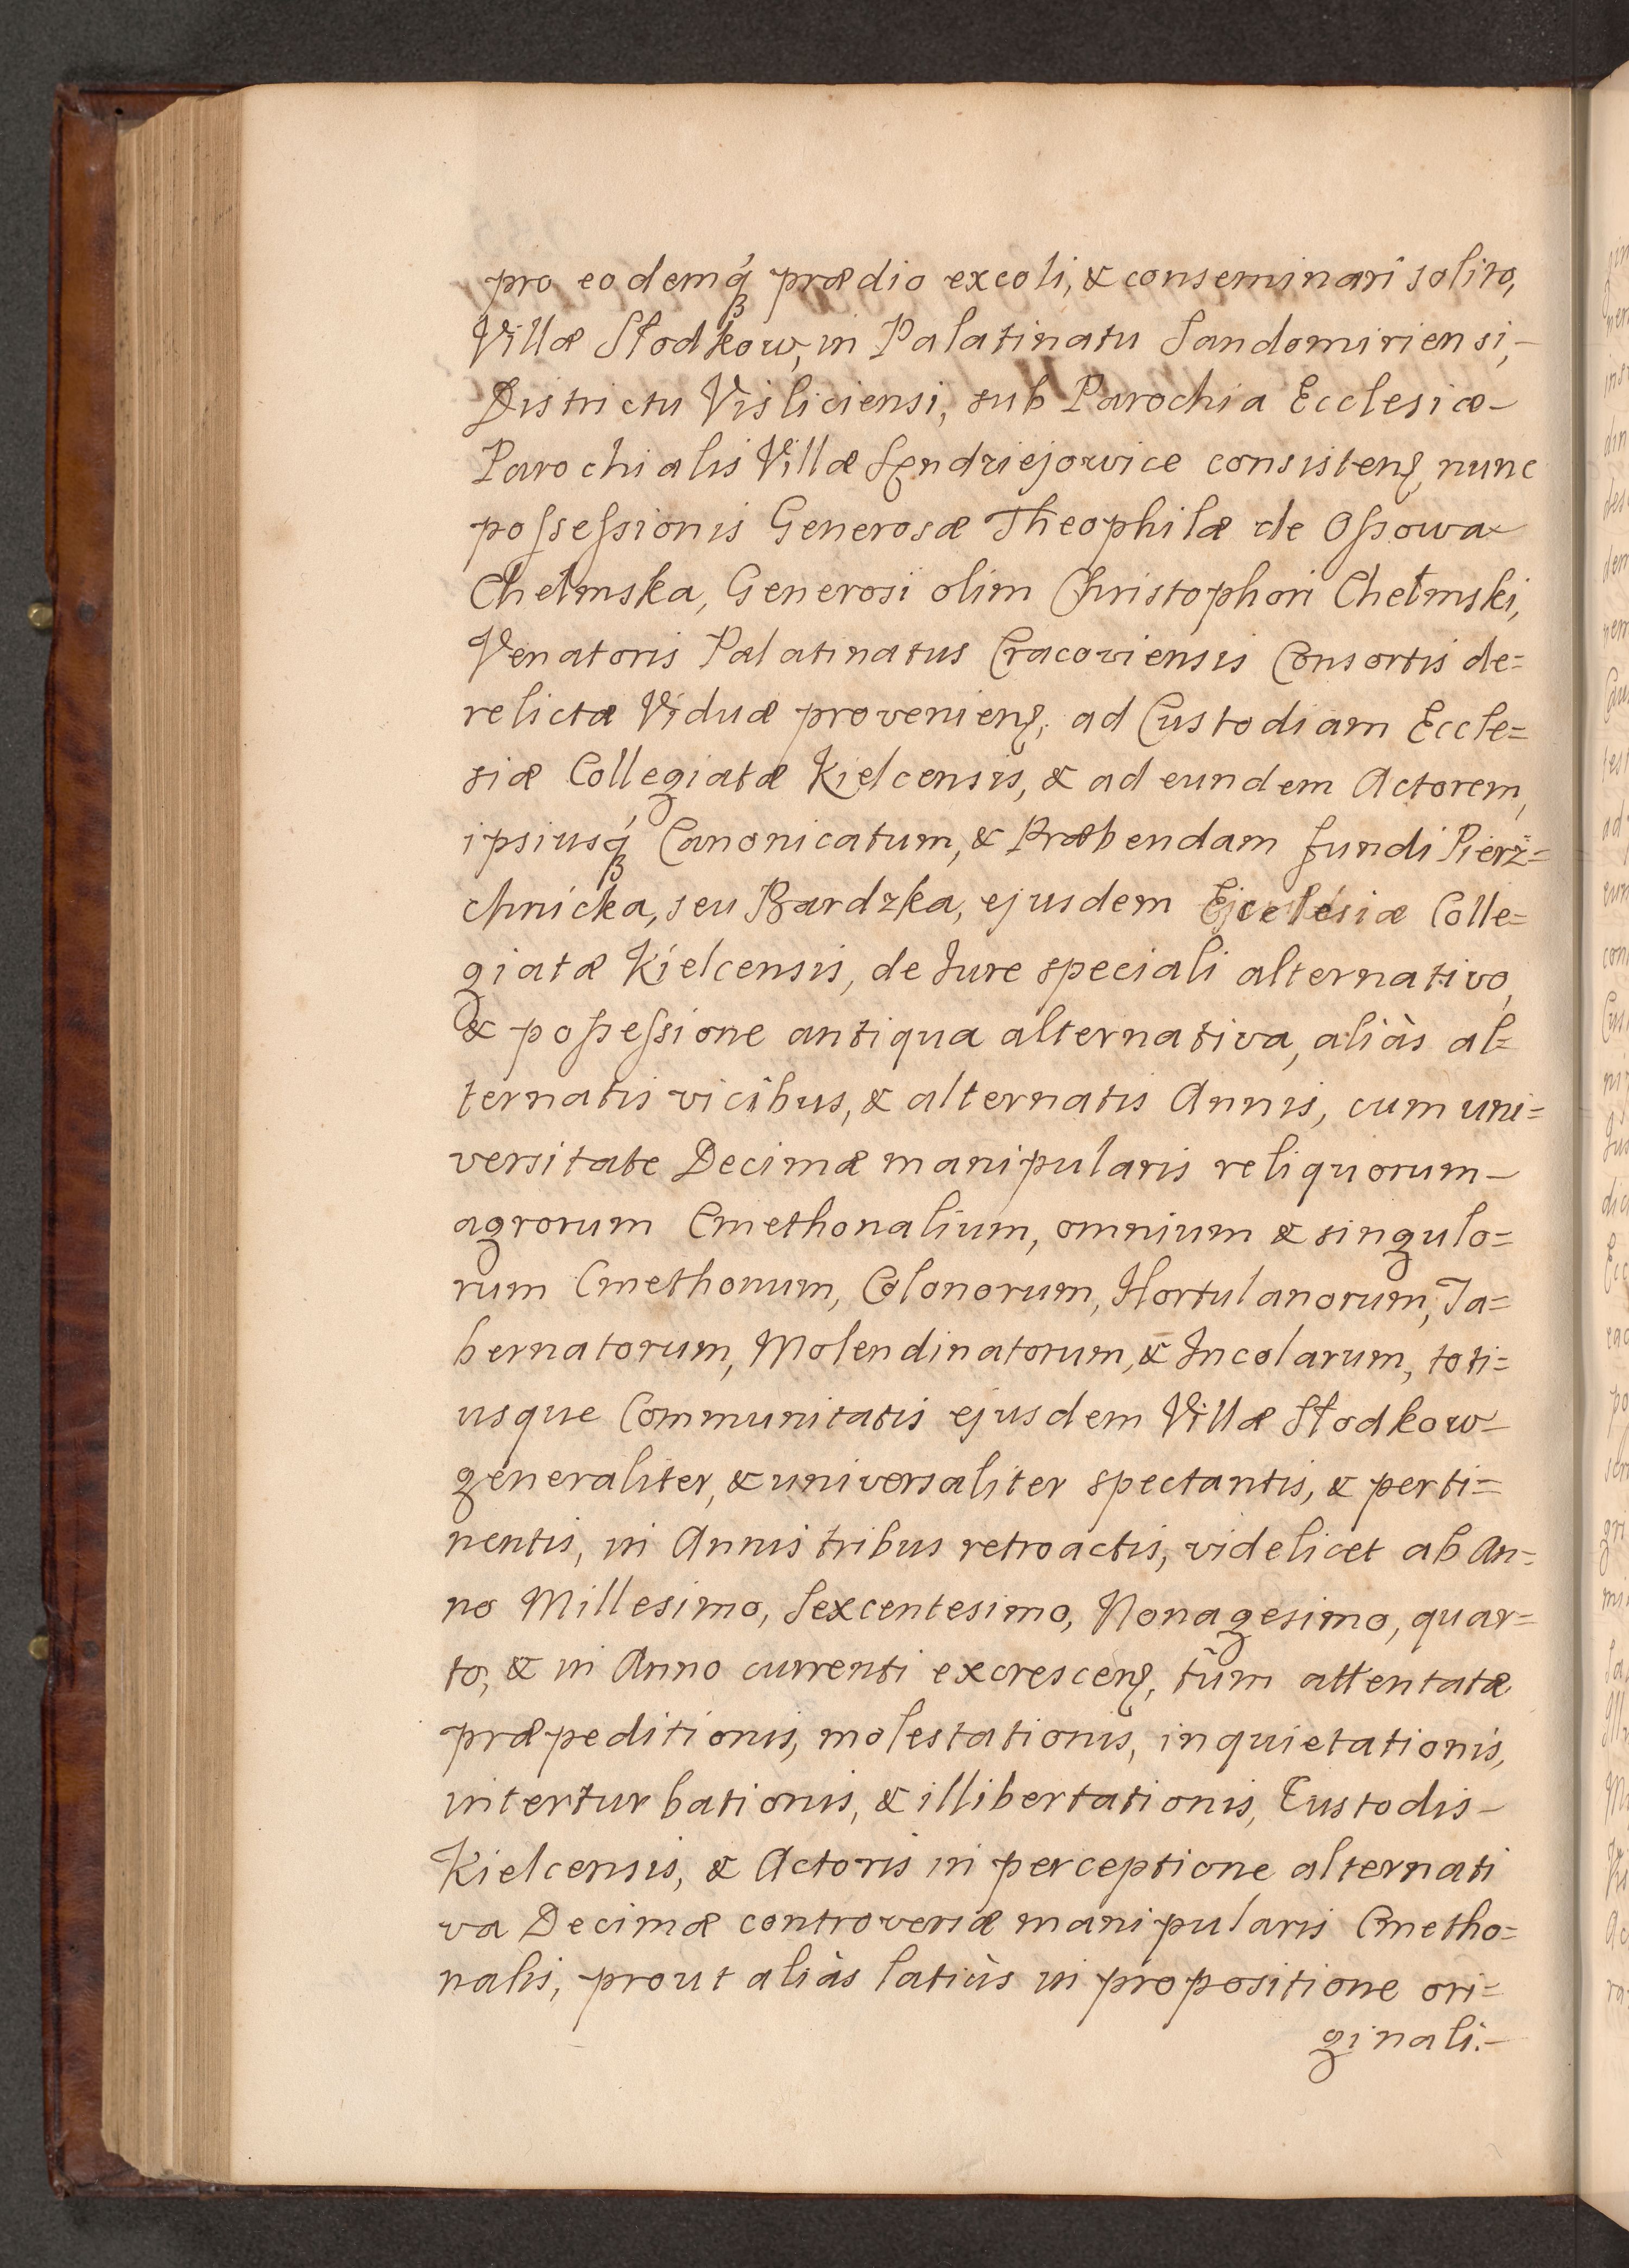 pro eodemq́ꝫ prædio excoli, & conseminari solito,
Villæ Słodkow, in Palatinatu Sandomiriensi,-
Districtu Visliciensi, sub Parochia Ecclesiæ-
Parochialis Villæ Sędziejowice consistenꝭ, nunc
possessionis Generosæ Theophilæ de Ossowa
Chełmska, Generosi olim Christophori Chełmski,
Venatoris Palatinatus Cracoviensis Consortis de=
relictæ Viduæ provenienꝭ, ad Custodiam Eccle=
siæ Collegiatæ Kielcensis, & ad eundem Actorem,
ipsiusq́ꝫ Canonicatum, & Præbendam fundi Pierż=
chnicka, seu Bardzka, ejusdem Ecclesiæ Colle=
giatæ Kielcensis, de Jure speciali alternativo,
& possessione antiqua alternativa, aliàs al=
ternatis vicibus, & alternatis Annis, cum uni=
versitate Decimæ manipularis reliquorum-
agrorum Cmethonalium, omnium & singulo=
rum Cmethonum, Colonorum, Hortulanorum, Ta=
bernatorum, Molendinatorum, & Incolarum, toti=
usque Communitatis ejusdem Villæ Słodkow-
generaliter, & universaliter spectantis, & perti=
nentis, in Annis tribus retroactis, videlicet ab An=
no Millesimo, Sexcentesimo, Nonagesimo, quar=
to, & in Anno currenti excrescenꝭ, tùm attentatæ
præpeditionis, molestationis, inquietationis,
interturbationis, & illibertationis, Custodis-
Kielcensis, & Actoris in perceptione alternati
va Decimæ controversæ manipularis Cmetho=
nalis, prout aliàs latiùs in propositione ori=
ginali.-